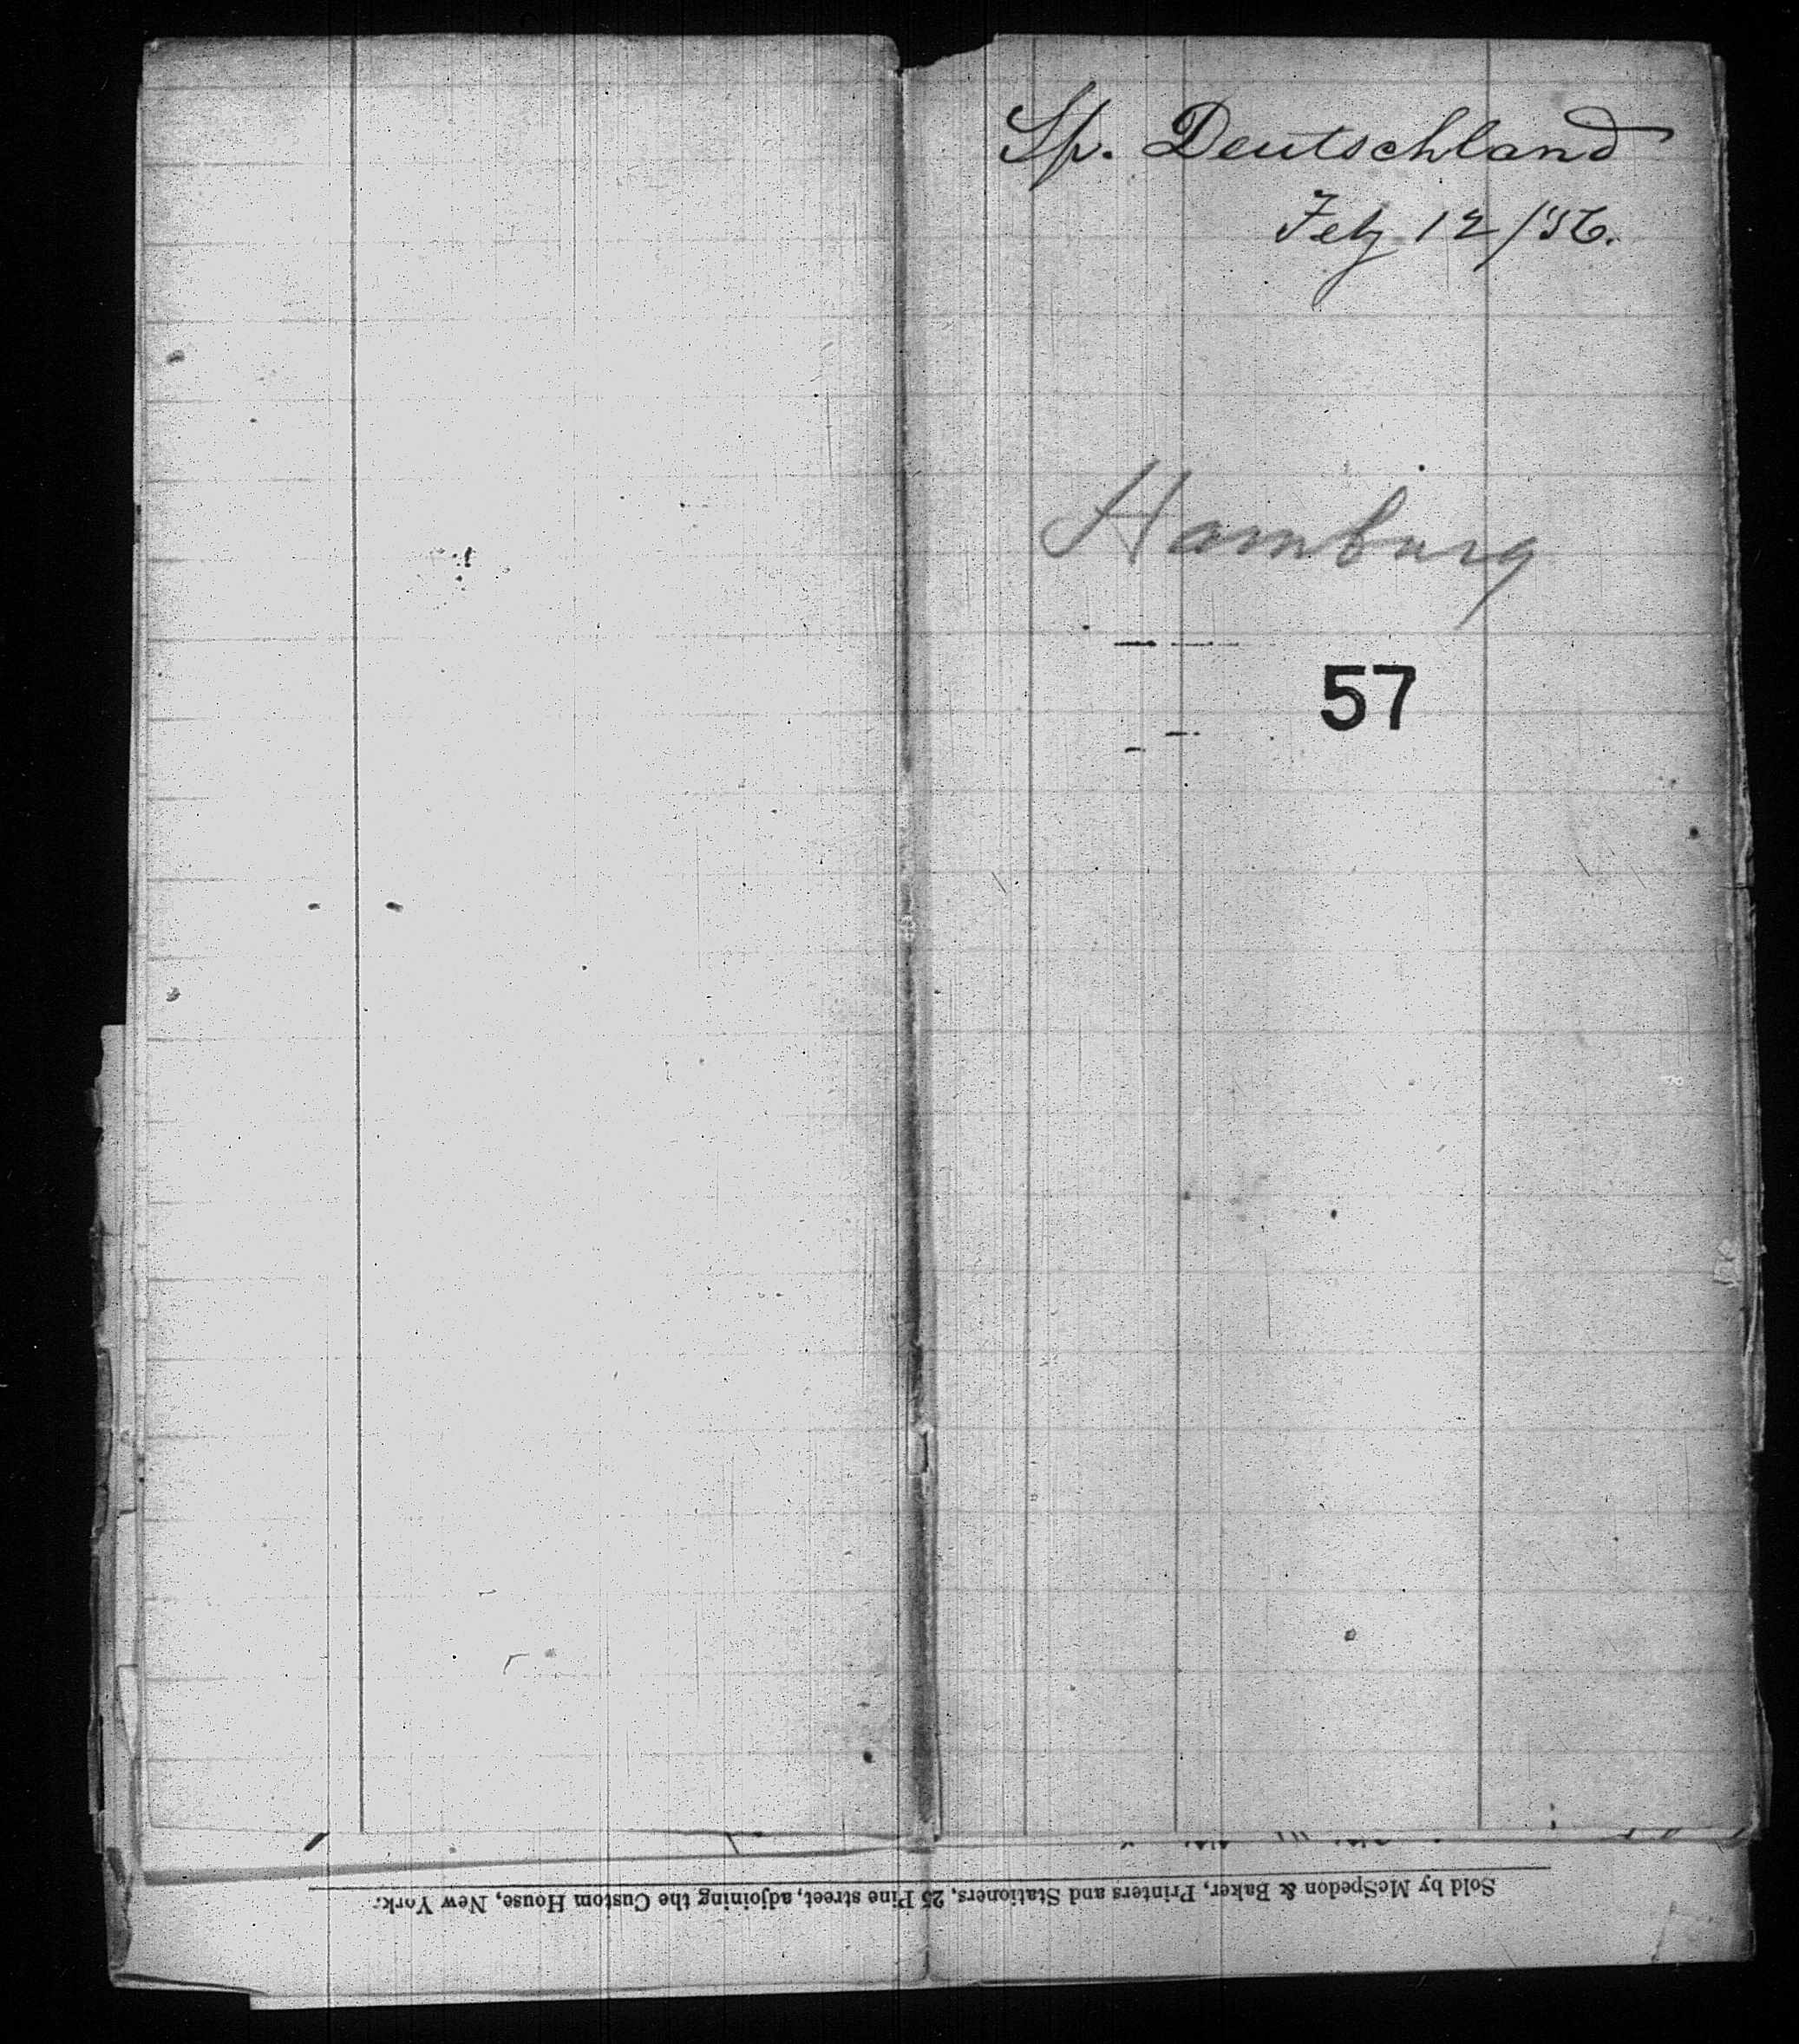 Sp. Deutschland
Feby 12/56.
Hamburg
57
Sold by McSpedon & Baker, Printers and Stationers, 25 Pine street, adjoining the Custom House, New York.